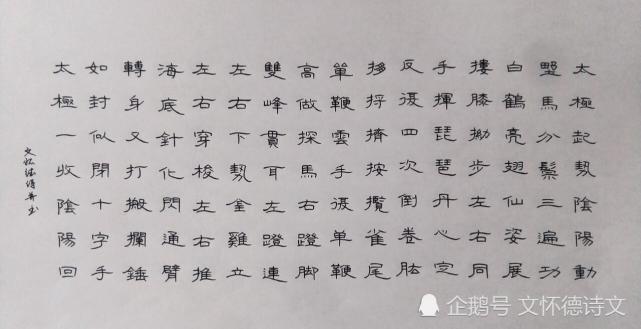 太極起勢陰陽動
墅馬分鬃三遍功
白鶴亮翅仙姿展
摟膝拗步左右同
手揮琵琶丹心定
反復四次倒卷肱
捋擠按攬雀尾
單鞭雲手復单鞭
高做探馬右蹬脚
雙峰貫耳左蹬連
左右下勢金雞立
左右穿梭左右推
海底針化閃通臂
轉身又打搬攔錘
如封似閉十字手
太極一收陰陽回
文怀德诗并书
企鹅号 文怀德诗文